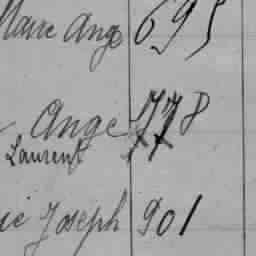 Marie Ange 695
Ange 778
Laurent
Joseph 901